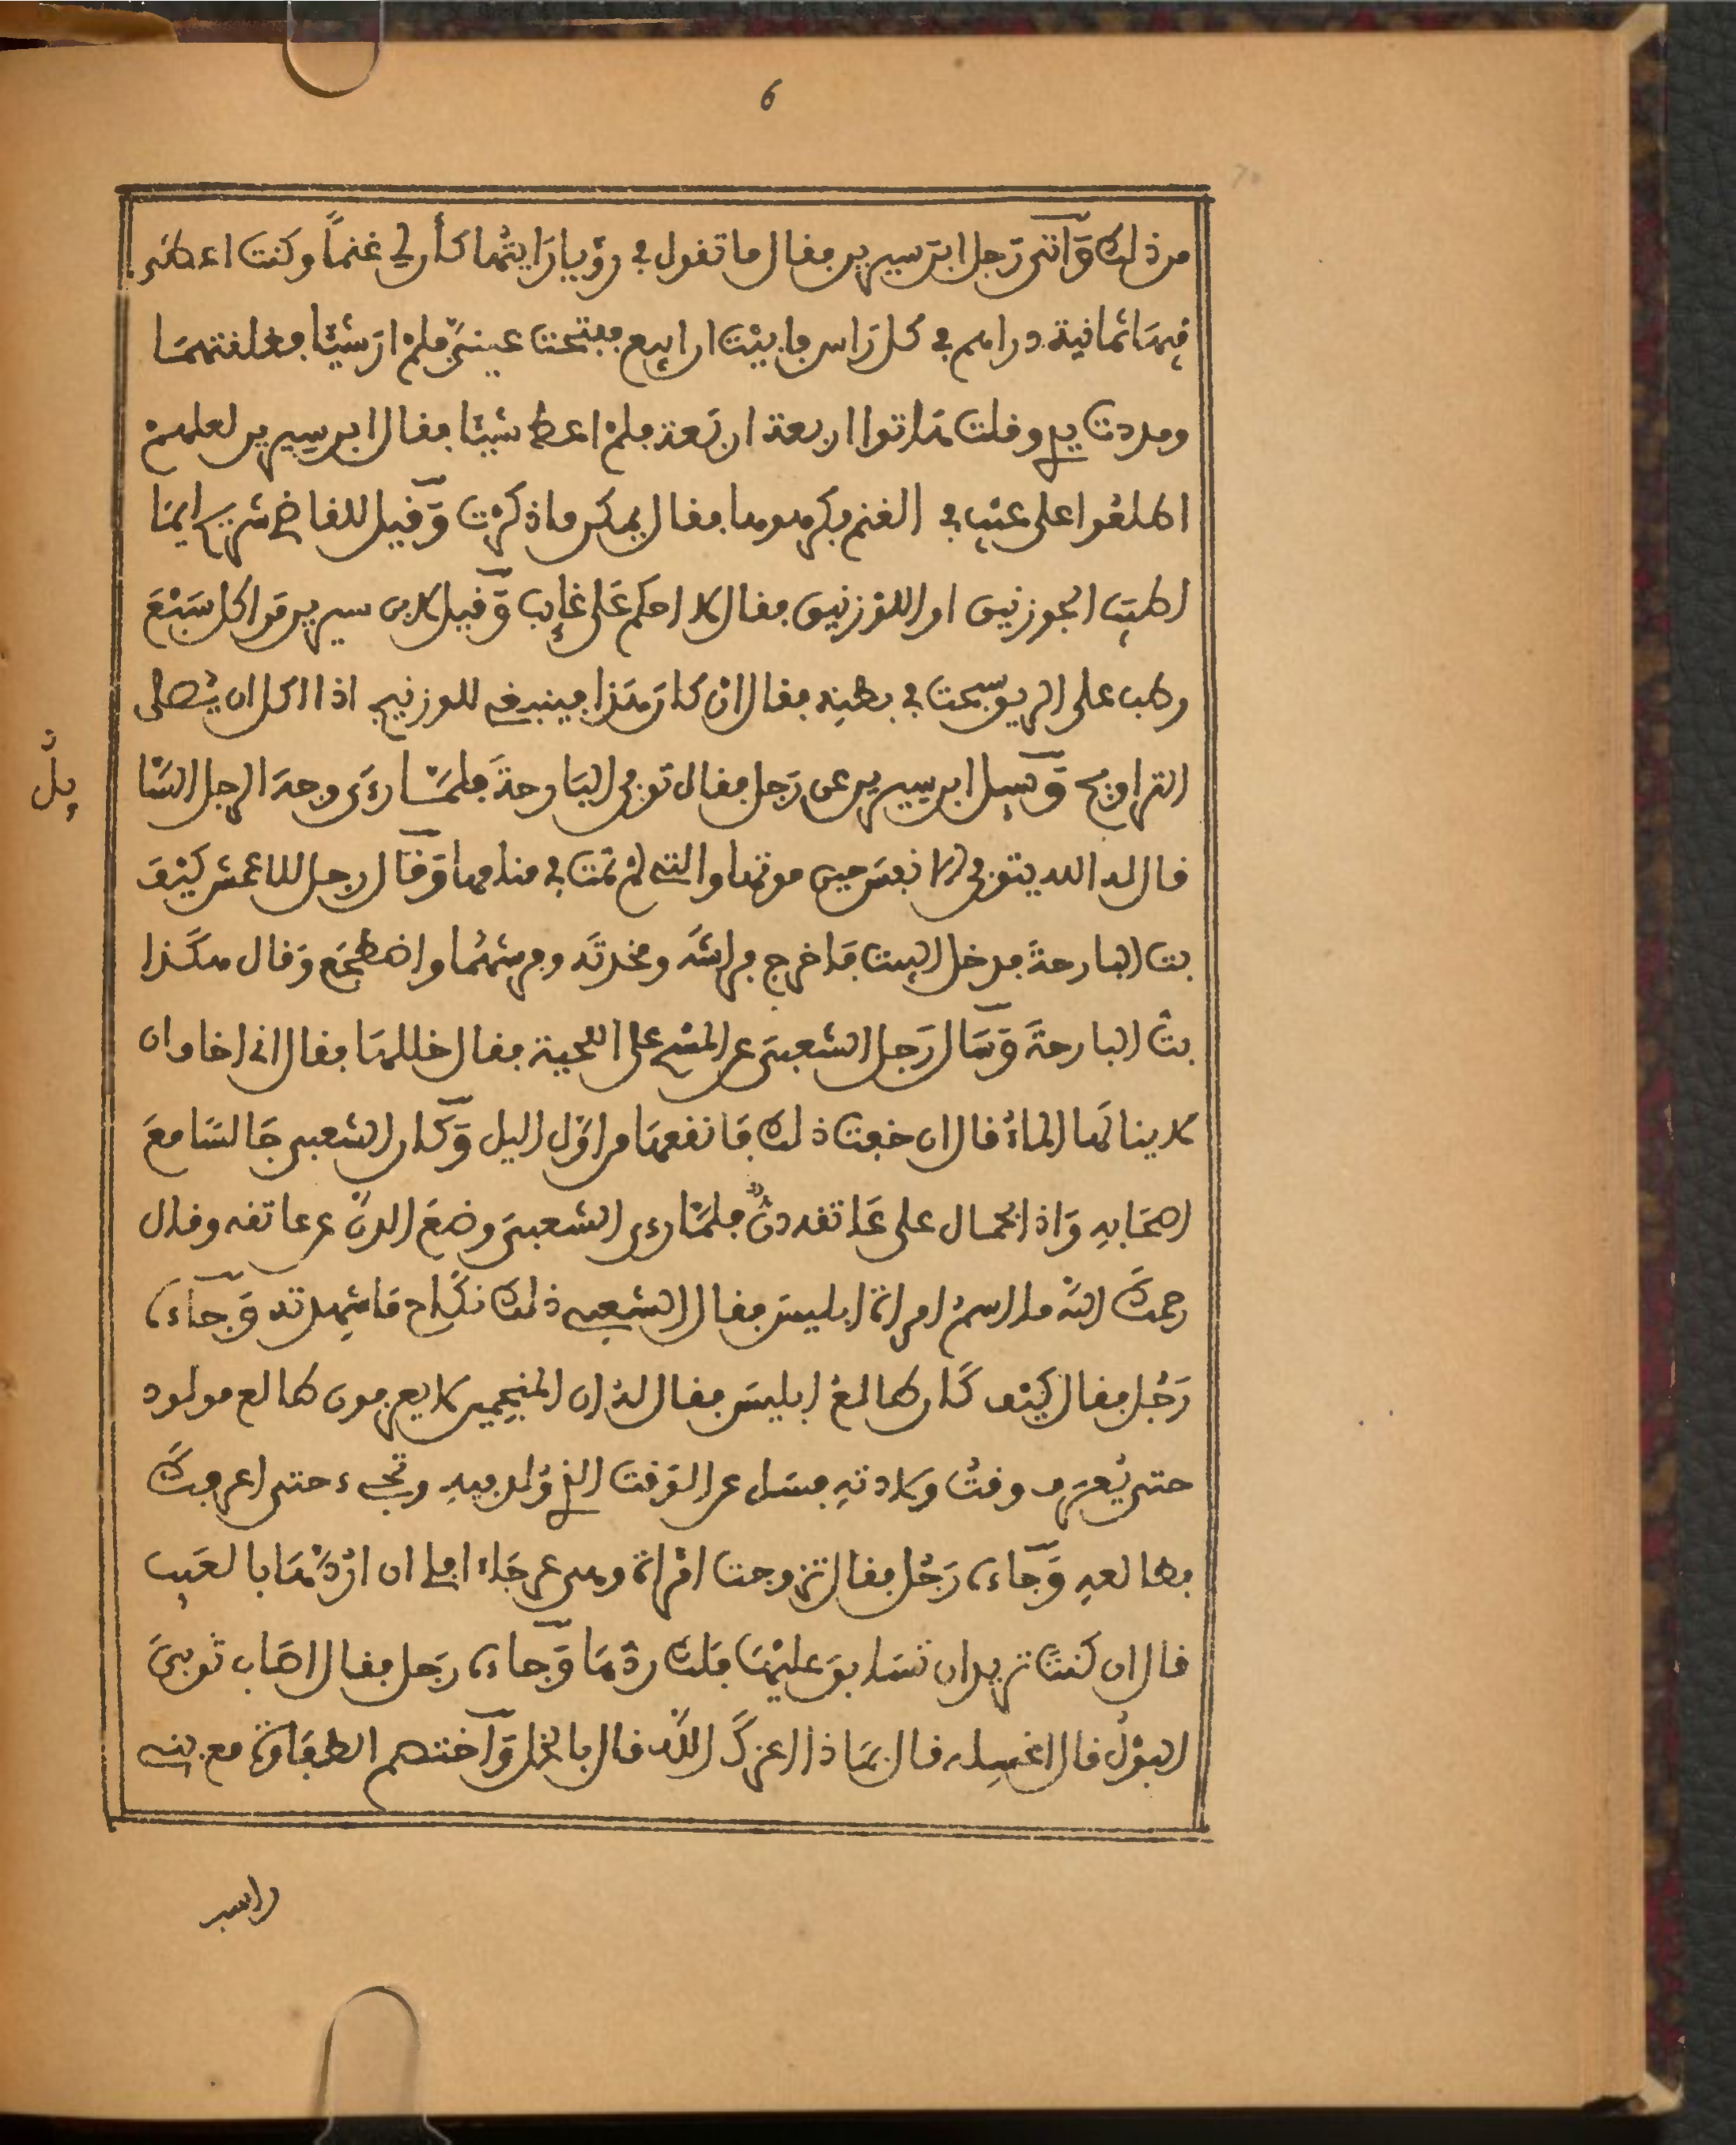 6
من ذلك وَّاتى رَجل ابن سيرين فقال ما تقول في رؤيا رَايتُها كأن لي غنماً وكنت اعطى
فيهَا ثمانية دراهم في كل رَاس فابيْت ان ابيع ففتحت عينيَّ فلمْ ارَ شيْئا فغلقتهمَا
ومددت يدي وقلت هَاتوا اربعة اربَعة فلمْ اعط شيئا فقال ابن سيرين لعلهمْ
اطلعُوا على عيْب في الغنم فكرهوها فقال يمكن ما ذكرْت وَّقيل للقاضي شريح ايمَا
اطيَب الجوزنيق او اللوْزنيق فقال لا احكم عَلى غايِب وَّقيل لابن سيرين مَن اكل سَبْعَ
رطب على الريق سبحت في بطنِه فقال انْ كان هَذا فينبغي للوزنيج اذا اكل ان يُّصلى
التراويح وَّسيل ابن سيرين عن رَجل فقال توفي البَارحةَ فلمَّا رءَى وجهَ الرجل السَّا
يِلُ
قال له الله يتوفى الانفسَ حين موتها والتي لمْ تمت في منامها وَّقال رجل للاعمش كيْفَ
بت البارحةَ فدخل البيت فَاخرج فراشَه ومخدتَه وفرشهُما واضطجَع وَقال هكَذا
بتّ البارحةَ وَّسَال رَجل الشعبيَّ عن المسْح على اللحية فقال خللهَا فقال اني اخاف ان
لا ينالهَا الماءُ قال ان خفت ذلك فَانقعهَا من اوَّل اليل وَّكان الشعبي جَالسًا معَ
اصحَابهِ وَاذا بحمال على عَاتقه دنٌّ فلمَّا رءى الشعبيَّ وضعَ الدنّ عن عاتقه وقال
رحمكَ اللهُ ما اسمُ امراة ابليسَ فقال الشعبي ذلك نكَاح مَا شهِدته وَّجَاءَ
رَجُل فقال كيْف كَان طالعُ ابليسَ فقال لهُ ان المنجمين لا يعرفون طالع مولود
حتى يُعرَف وقتُ ولادتهِ فسَل عن الوَقت الذي وُلد فيهِ وتجيء حتى اعرفكَ
بطالعهِ وَّجاءَ رَجُل فقال تزوجت امْراة وهي عرجَاء افلي ان ارُدَّهَا بالعَيِب
قال ان كنت تريد ان تسَابقَ عليْهَا فلك ردّهَا وَّجاءَ رَجل فقال اصَاب ثوبيَ
البوْلُ قال اغسِله قال بمَاذا اعزكَ اللهُ قال بالخل وَّاختصم الطفَاوة مع بني
راسب